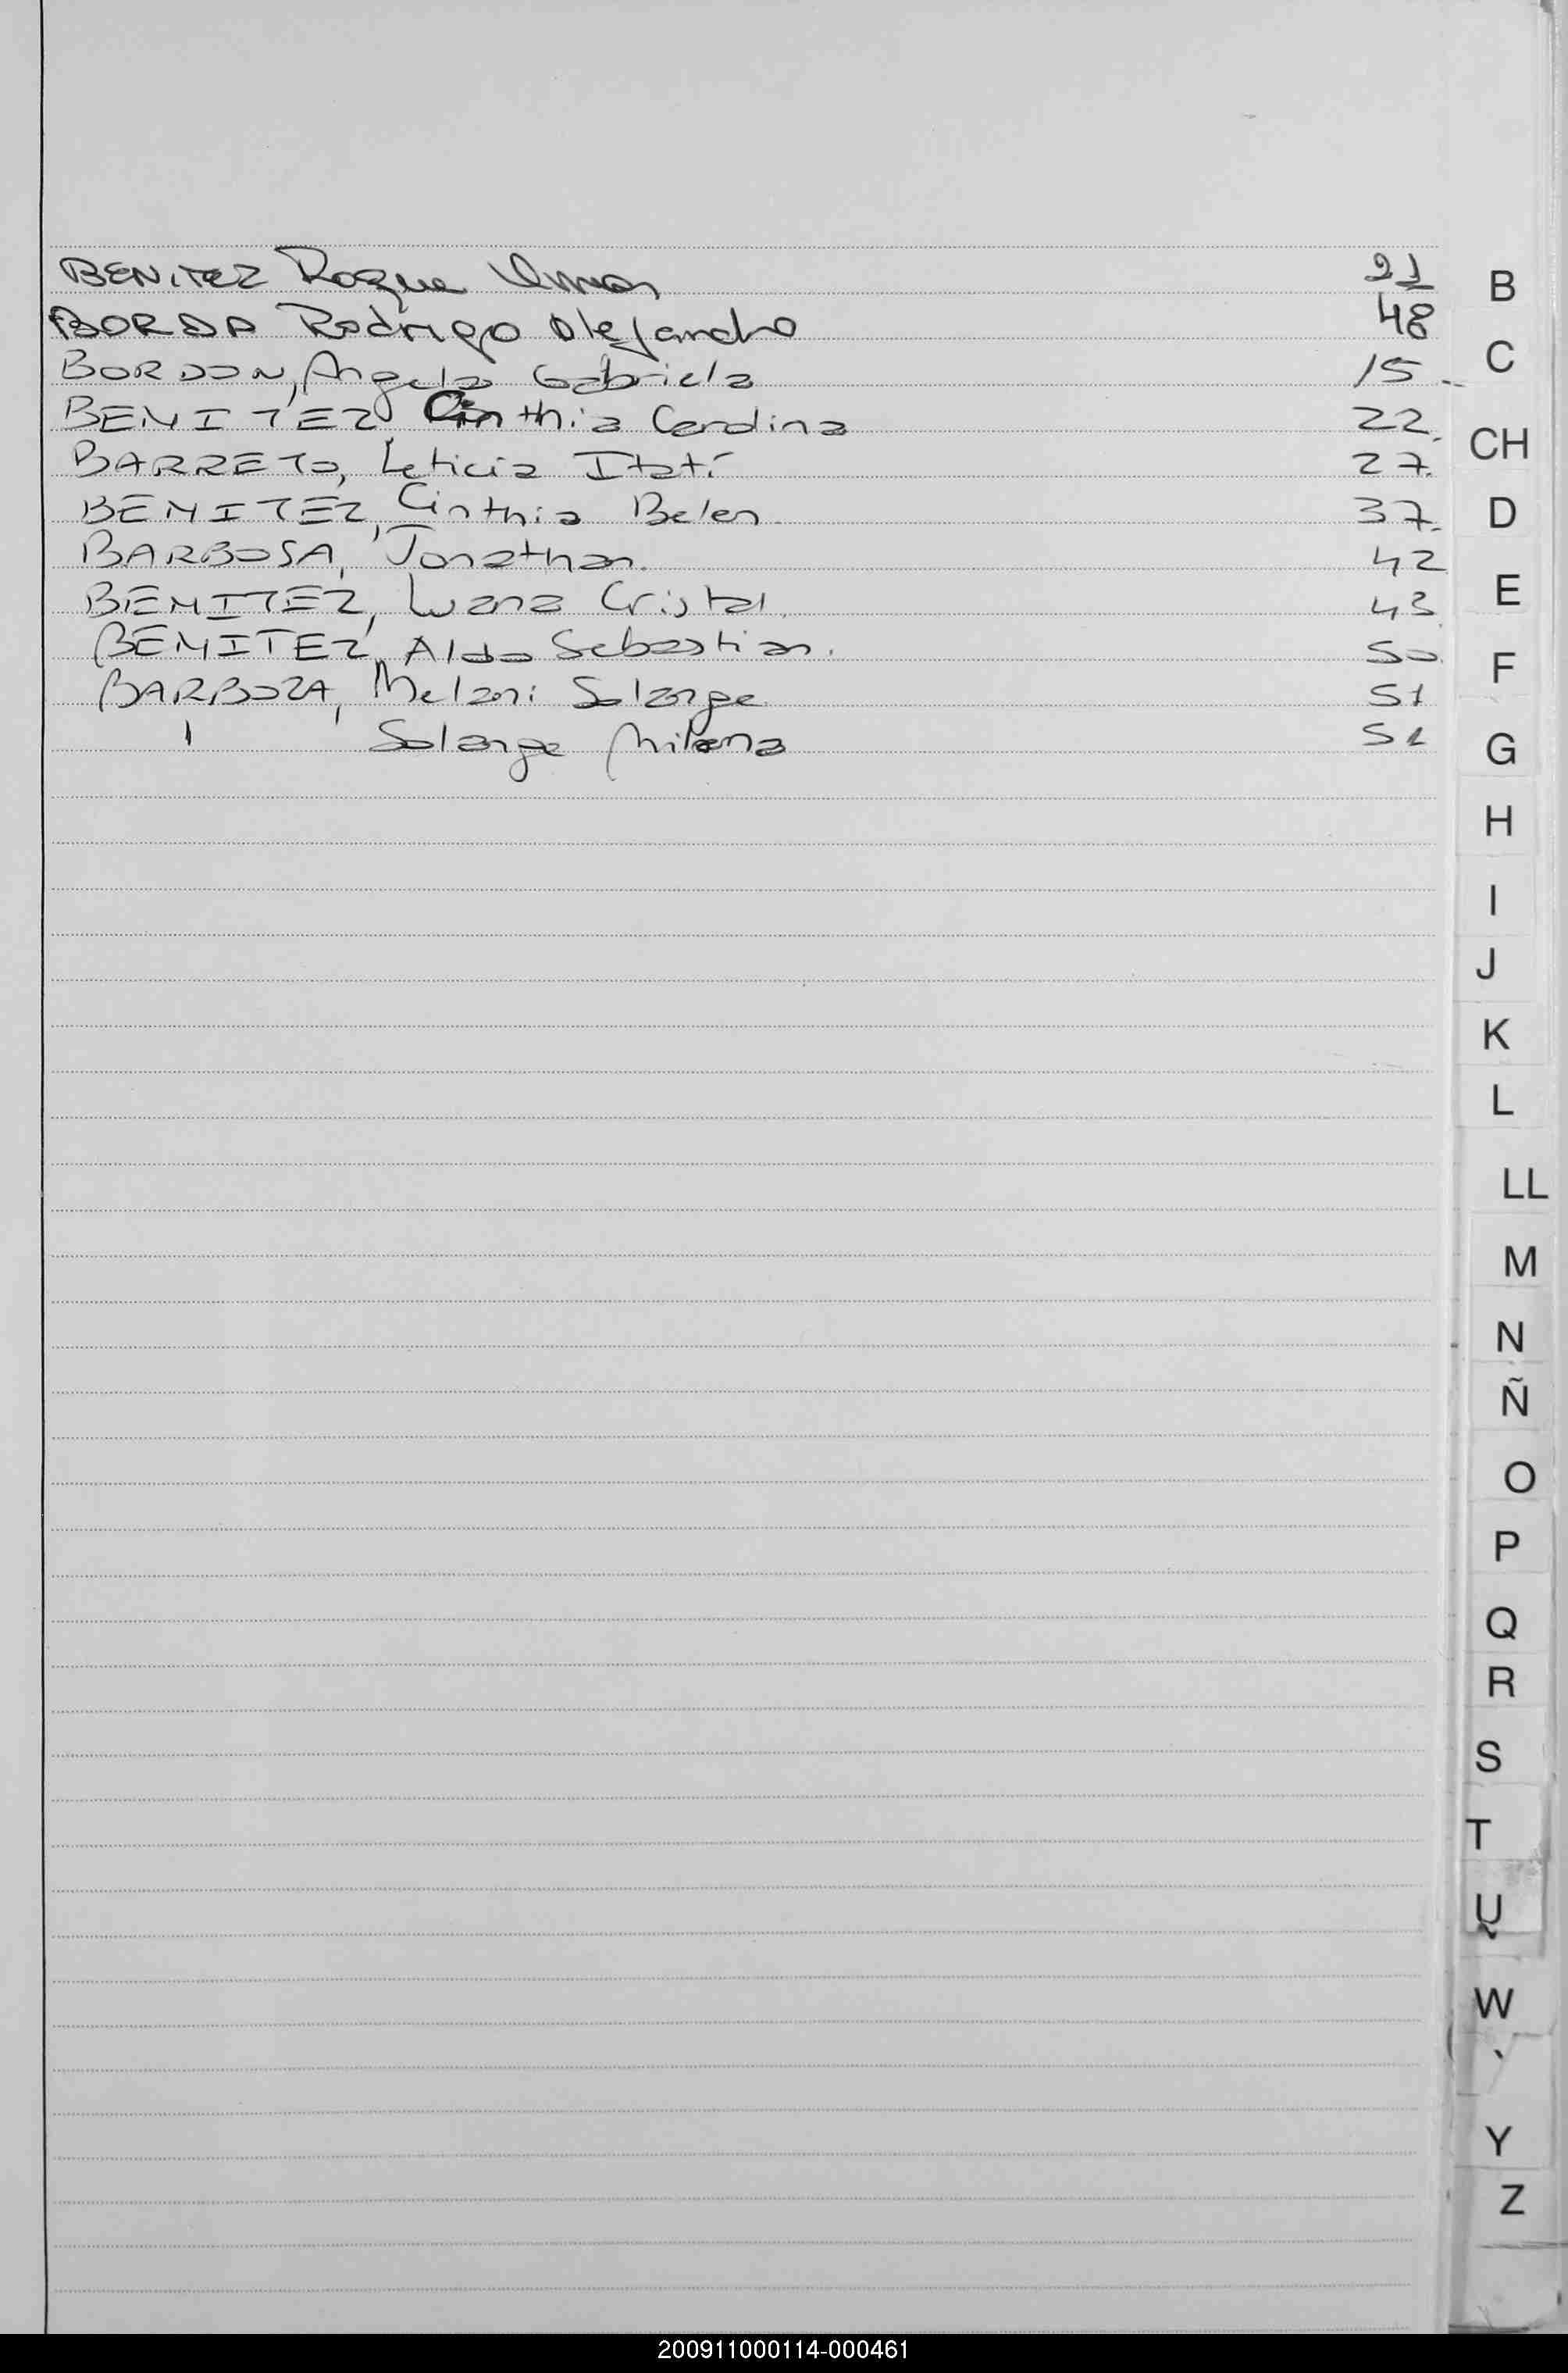 BENITEZ Roque Omar 21
BORDA Rodrigo Alejandro 48
BORDON, Angela Gabriela 15.
BENITEZ, Cinthia Carolina 22.
BARRETO, Leticia Itatí 27.
BENITEZ, Cinthia Belen. 37.
BARBOSA, Jonathan. 42
BENITEZ, Luana Cristal. 43
BENITEZ, Aldo Sebastian. 50.
BARBOZA, Melani Solange 51
Solange Milena 51
B
C
CH
D
E
F
G
H
I
J
K
L
LL
M
N
Ñ
O
P
Q
R
S
T
U
W
Y
Z
200911000114-000461